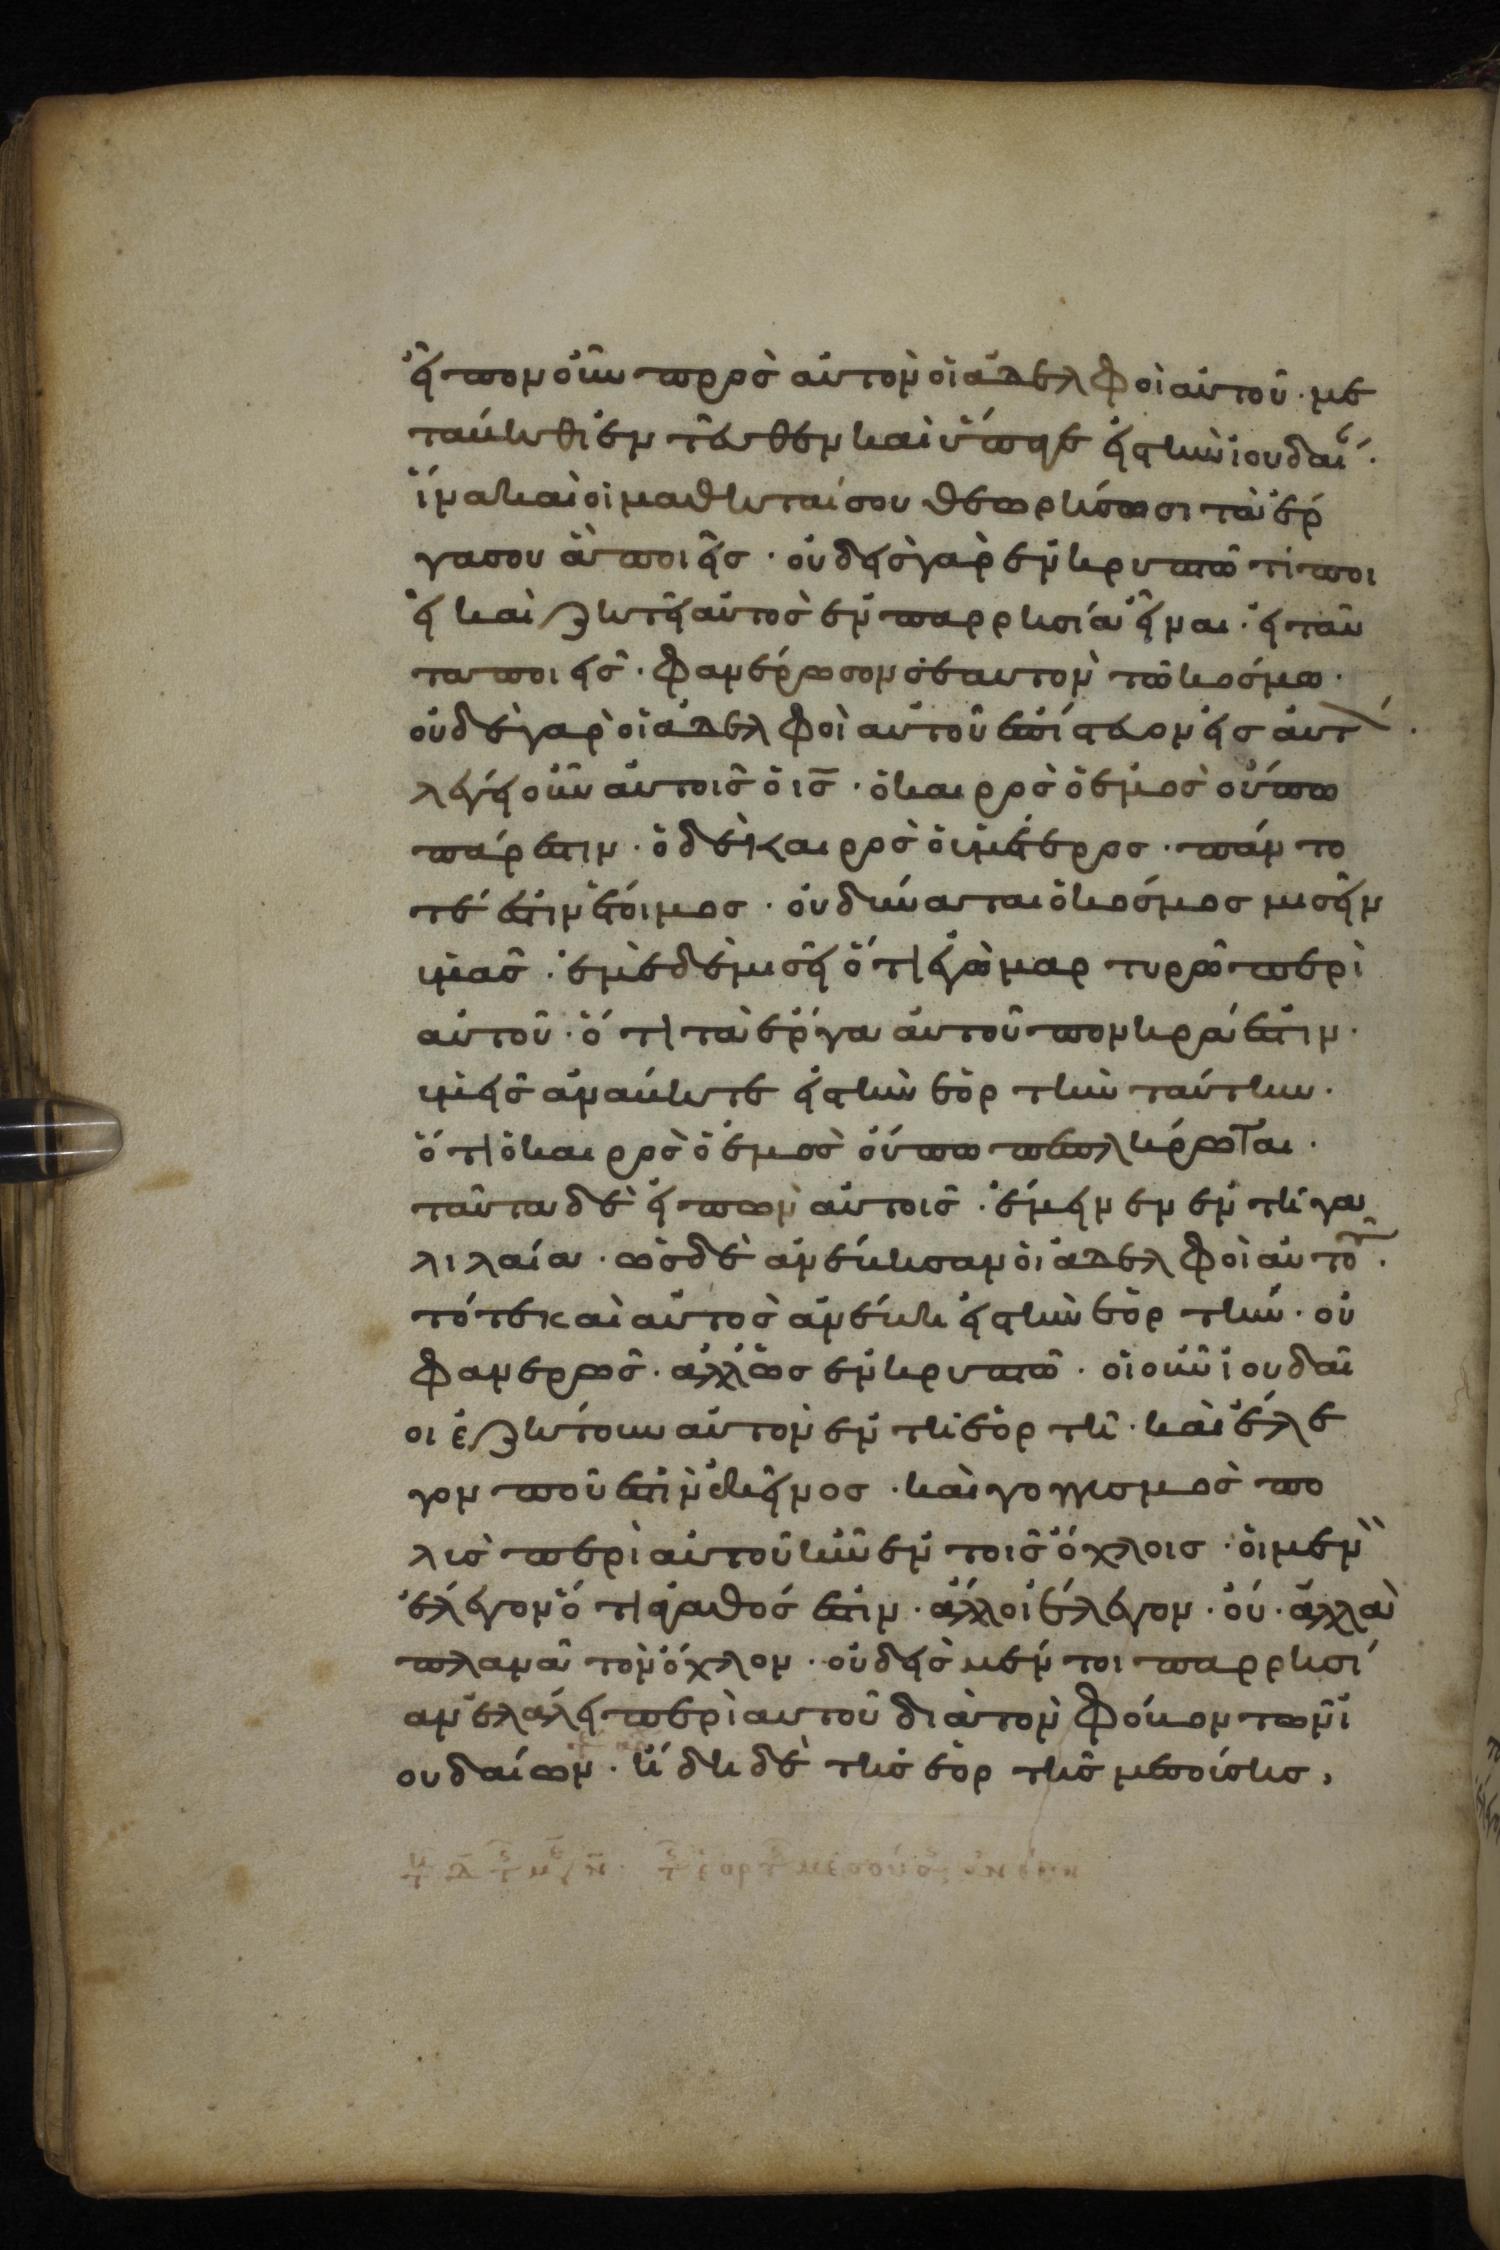 εἶπον οὖν πρὸς αὐτὸν οἱ ἀδελφοὶ αὐτοῦ · με
τάβηθι ἐντεῦθεν καὶ ὕπαγε εἰς τὴν ἰουδαί ·
ἵνα καὶ οἱ μαθηταί σου θεωρήσωσι τὰ ἔρ
γα σου ἃ ποιεῖς · οὐδεὶς γὰρ ἐν κρυπτῶ τὶ ποι
εῖ καὶ ζητεῖ αὐτὸς ἐν παρρησία εἶναι · εἰ ταῦ
τα ποιεῖς · φανέρωσον σεαυτὸν τῶ κόσμω ·
οὐδὲ γὰρ οἱ ἀδελφοὶ αὐτοῦ ἐπίστευον εἰς αὐτ ·
λέγει οὖν αὐτοῖς ὁ ις · ὁ καιρὸς ὁ ἐμὸς οὔπω
πάρεστιν · ὁ δὲ καιρὸς ὁ ὑμέτερος · πάντο
τέ ἐστιν ἕτοιμος · οὐ δύναται ὁ κόσμος μισεῖν
ὑμᾶς · ἐμὲ δὲ μισεῖ ὅτι ἐγὼ μαρτυρῶ περὶ
αὐτοῦ · ὅτι τὰ ἔργα αὐτοῦ πονηρά ἐστιν ·
ὑμεῖς ἀνάβητε εἰς τὴν ἑορτὴν ταύτην ·
ὅτι ὁ καιρὸς ὁ ἐμὸς οὔπω πεπλήρωται ·
ταῦτα δὲ εἰπὼν αὐτοῖς · ἔμεινεν ἐν τῆ γα
λιλαία · ὡς δὲ ἀνέβησαν οἱ ἀδελφοὶ αὐτοῦ ·
τότε καὶ αὐτὸς ἀνέβη εἰς τὴν ἑορτήν · οὐ
φανερῶς · ἀλλ ὡς ἐν κρυπτῶ · οἱ οὖν ἰουδαῖ
οι ἐζήτουν αὐτὸν ἐν τῆ ἑορτῆ · καὶ ἔλε
γον ποῦ ἐστὶν ἐκεῖνος · καὶ γογγυσμὸς πο
λὺς περὶ αὐτοῦ ἦν ἐν τοῖς ὄχλοις · οἱ μὲν
ἔλεγον ὅτι ἀγαθός ἐστιν · ἄλλοι ἔλεγον · οὔ · ἀλλὰ
πλανᾶ τὸν ὄχλον · οὐδεὶς μέντοι παρρησί
α ἐλάλει περὶ αὐτοῦ διὰ τὸν φόβον τῶν ἰ
ουδαίων · ἤδη δὲ τῆς ἑορτῆς μεσούσης ,